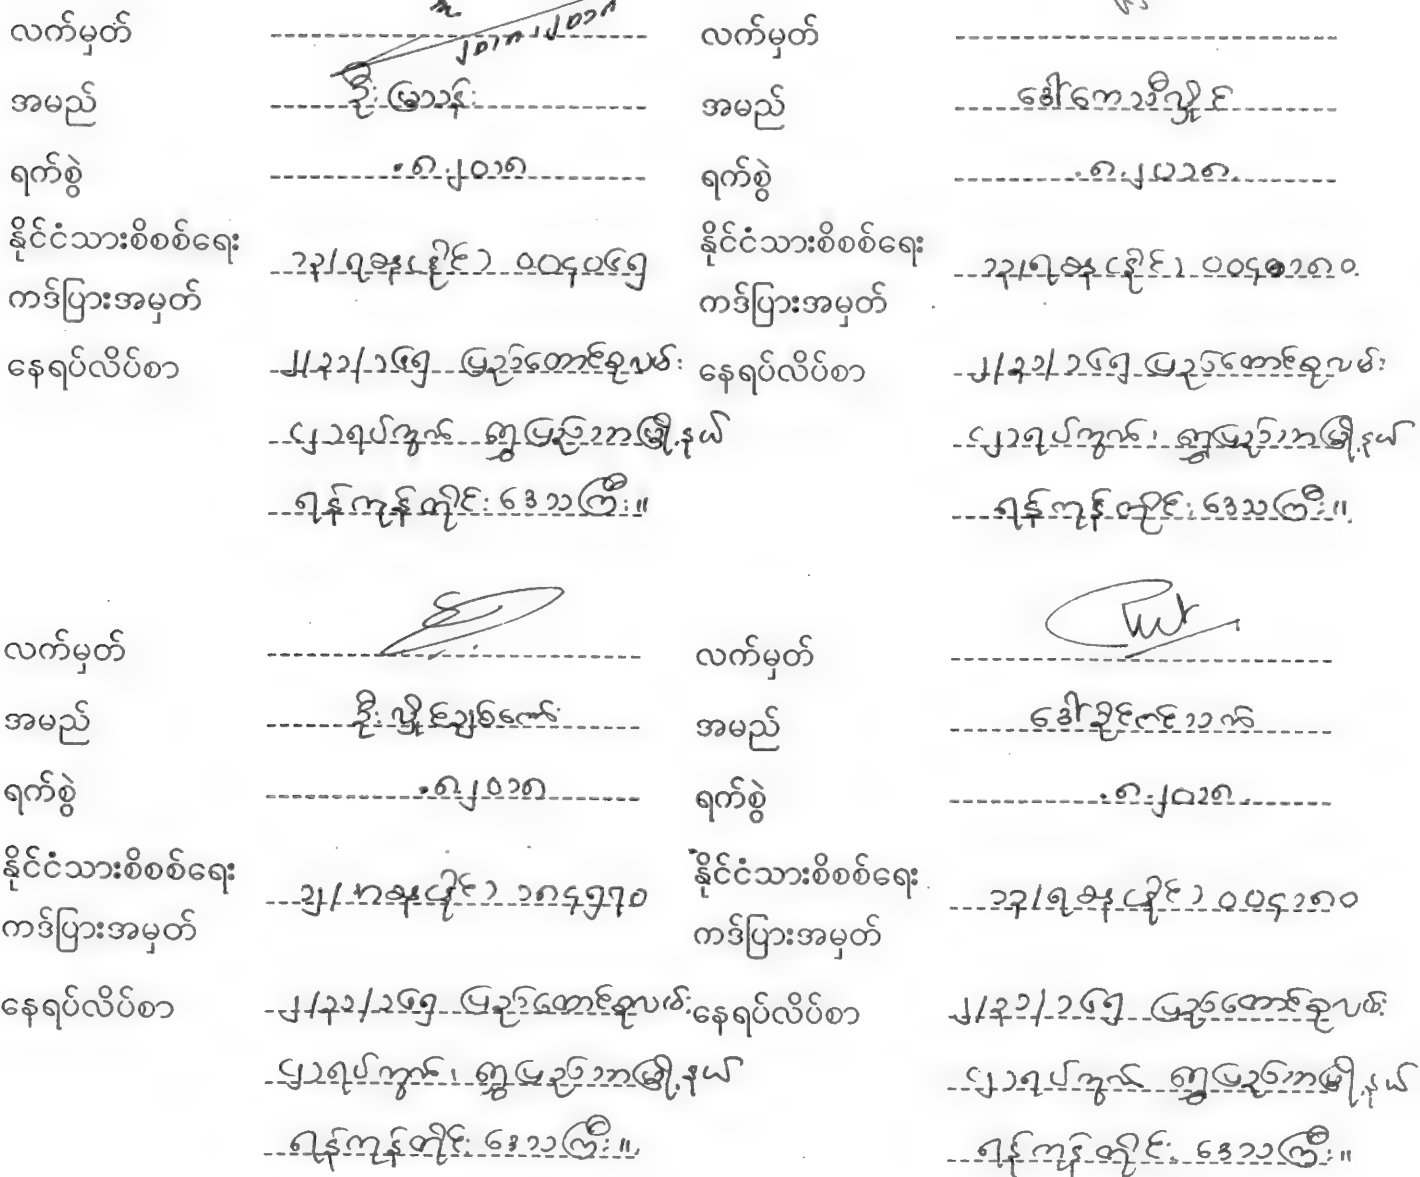 လက်မှတ်
အမည် ဦးမြသန်း
ရက်စွဲ .၈.၂၀၁၈
နိုင်ငံသားစိစစ်ရေး
ကဒ်ပြားအမှတ် ၁၃/ရခန(နိုင်) ၀၀၄၀၆၅
နေရပ်လိပ်စာ ၂/၃၁/၁၆၅ ပြည်ထောင်စုလမ်း
၄၂ ရပ်ကွက် ရွှေပြည်သာမြို့နယ်
ရန်ကုန်တိုင်းဒေသကြီး။
လက်မှတ်
အမည် ဒေါ်ကေသီလှိုင်
ရက်စွဲ .၈.၂၀၁၈.
နိုင်ငံသားစိစစ်ရေး
ကဒ်ပြားအမှတ် ၁၃/ရခန(နိုင်)
နေရပ်လိပ်စာ ၂/၃၁/၁၆၅ ပြည်ထောင်စုလမ်း
ရပ်ကွက်၊ ရွှေပြည်သာမြို့နယ်
ရန်ကုန်တိုင်းဒေသကြီး။
လက်မှတ်
အမည် ဦးလှိုင်ချစ်ကော်
ရက်စွဲ .၈.၂၀၁၈
နိုင်ငံသားစိစစ်ရေး
ကဒ်ပြားအမှတ် ၁၈၄၅၇၀
နေရပ်လိပ်စာ ၂/၃၁/၁၆၅ ပြည်ထောင်စုလမ်း
ရပ်ကွက်၊ ရွှေပြည်သာမြို့နယ်
ရန်ကုန်တိုင်းဒေသကြီး။
လက်မှတ်
အမည် ဒေါ်ခိုင်ဇင်သက်
ရက်စွဲ .၈.၂၀၁၈.
နိုင်ငံသားစိစစ်ရေး
ကဒ်ပြားအမှတ် ၁၃/ရခန(နိုင်) ၀၀၄၁၈၀
နေရပ်လိပ်စာ ၂/၃၁/၁၆၅ ပြည်ထောင်စုလမ်း
ရပ်ကွက် ရွှေပြည်သာမြို့နယ်
ရန်ကုန်တိုင်းဒေသကြီး။